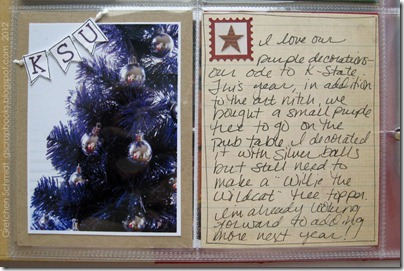 KSU
Gretchen Schmidt, gscrapbooks.blogspot.com 2012
I love our
purple decorations -
our ode to K-State.
This year, in addition
to the att nitch, we
bought a small purple
tree to go on the
pub table. I decorated
it with silver balls
but still need to
make a "Willie the
Wildcat" tree topper.
I'm already looking
forward to adding
more next year!